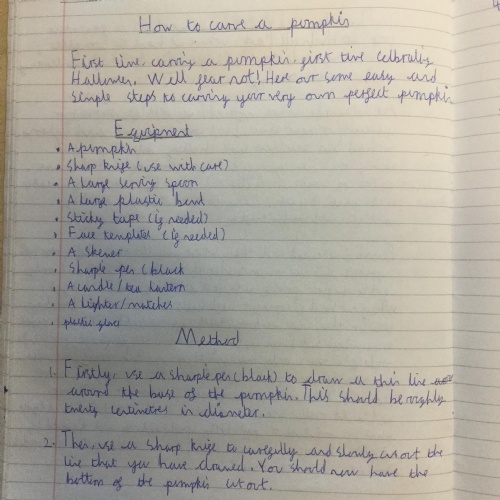 How to carve a pumpkin
First time carving a pumpkin, first time celbrating
Hallowen. Well fear not! Here our some easy and
simple steps to carving your very own perfect pumpkin
Equipment
• A pumpkin
• Sharp knife (use with care)
• A large serving spoon
• A large plastic bowl
• Sticky tape (if needed)
• Face templates (if needed)
• A skewer
• Sharpie pen (black
• A candle/tea lantern
• A lighter/matches
• plastic gloves
Method
1. Firstly, use a sharpie pen (black) to draw a thin line
around the base of the pumpkin. This should be roughly
twenty centimetres in diameter.
2. Then, use a sharp knife to carefully and slowly cut out the
line that you have drawed. You should now have the
bottom of the pumpkin cut out.